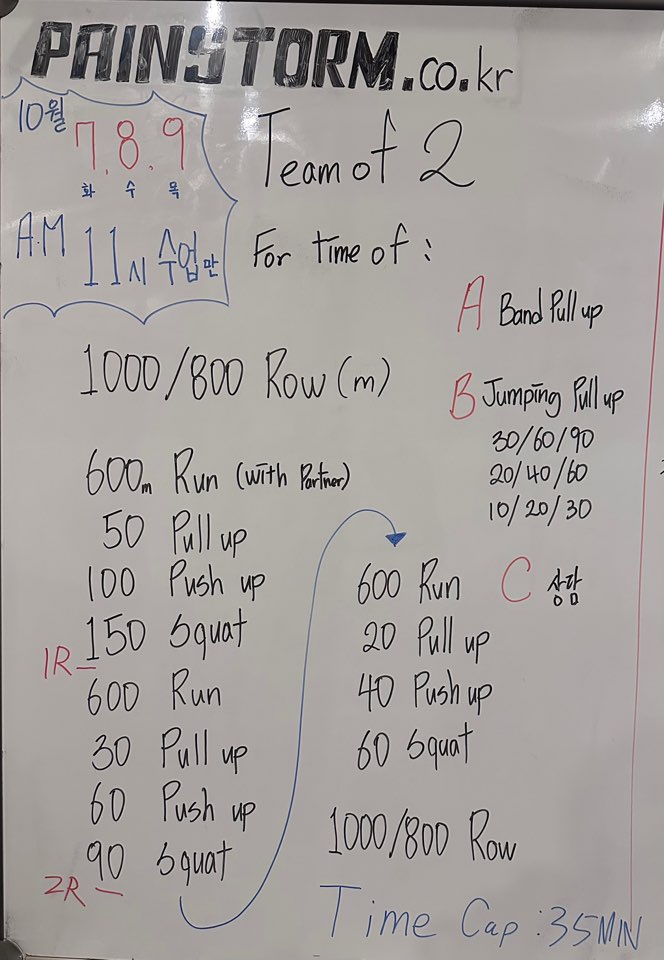 PAINSTORM.co.kr
10월 7.8.9
화 수 목
A.M 11시 수업만
Team of 2
For time of :
1000/800 Row (m)
600m Run (with Partner)
50 Pull up
100 Push up
150 Squat
1R
600 Run
30 Pull up
60 Push up
90 Squat
2R
600 Run
20 Pull up
40 Push up
60 Squat
1000/800 Row
A Band Pull up
B Jumping Pull up
30/60/90
20/40/60
10/20/30
C 상담
Time Cap : 35MIN